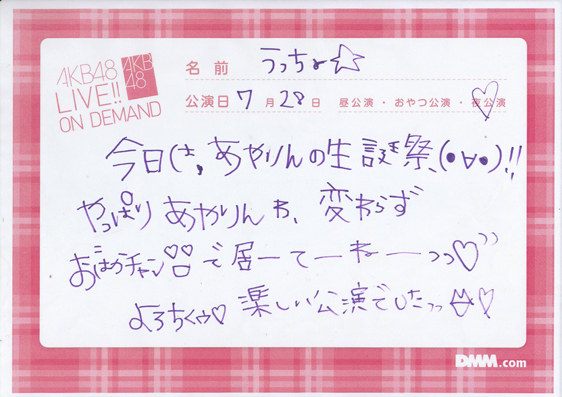 AKB48
LIVE!!
ON DEMAND
AKB
48
名前 うっちょ☆
公演日 7月28日 昼公演・おやつ公演・夜公演
今日は、あやりんの生誕祭、(•∀•)!!
やっぱり あやりんわ、変わらず
おばかチャンで居ーてーねーっっ♡
よろちくゥ♡ 楽しい公演でしたっっ♡
DMM.com